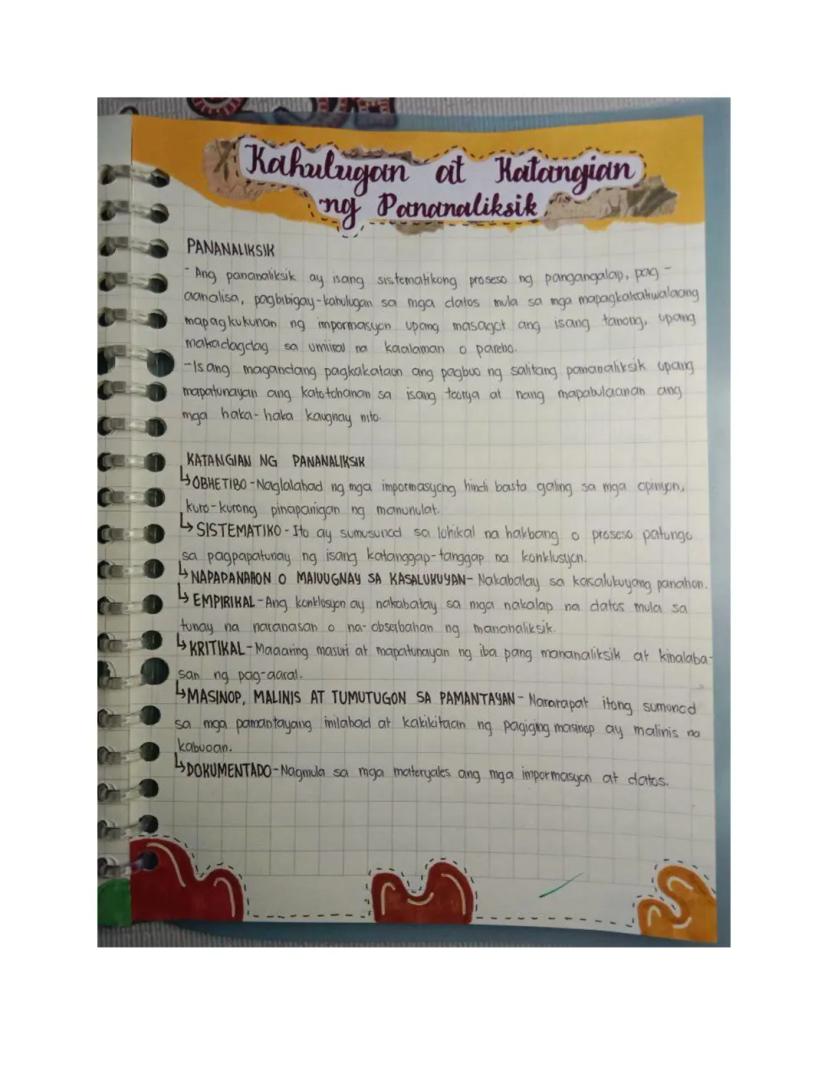 Kahulugan at Katangian
ng Pananaliksik
PANANALIKSIK
- Ang pananaliksik ay isang sistematikong proseso ng pangangalap, pag-
aanalisa, pagbibigay-kahulugan sa mga datos mula sa mga mapagkakatiwalaang
mapagkukunan ng impormasyon upang masagot ang isang tanong, upang
makadagdag sa umiiral na kaalaman o pareho.
- Isang magandang pagkakataon ang pagbuo ng salitang pananaliksik upang
mapatunayan ang katotohanan sa isang teorya at nang mapabulaanan ang
mga haka-haka kaugnay nito.
KATANGIAN NG PANANALIKSIK
↳ OBHETIBO - Naglalahad ng mga impormasyong hindi basta galing sa mga opinyon,
kuro-kurong pinapanigan ng manunulat.
↳ SISTEMATIKO - Ito ay sumusunod sa lohikal na hakbang o proseso patungo
sa pagpapatunay ng isang katanggap-tanggap na konklusyon.
↳ NAPAPANAHON O MAIUUGNAY SA KASALUKUYAN - Nakabatay sa kasalukuyang panahon.
↳ EMPIRIKAL - Ang konklosyon ay nakabatay sa mga nakalap na datos mula sa
tunay na naranasan o na-obserbahan ng mananaliksik.
↳ KRITIKAL - Maaaring masuri at mapatunayan ng iba pang mananaliksik at kinalaba-
san ng pag-aaral.
↳ MASINOP, MALINIS AT TUMUTUGON SA PAMANTAYAN - Nararapat itong sumunod
sa mga pamantayang inilahad at kakikitaan ng pagiging masinop ay malinis na
kabuoan.
↳ DOKUMENTADO - Nagmula sa mga materyales ang mga impormasyon at datos.